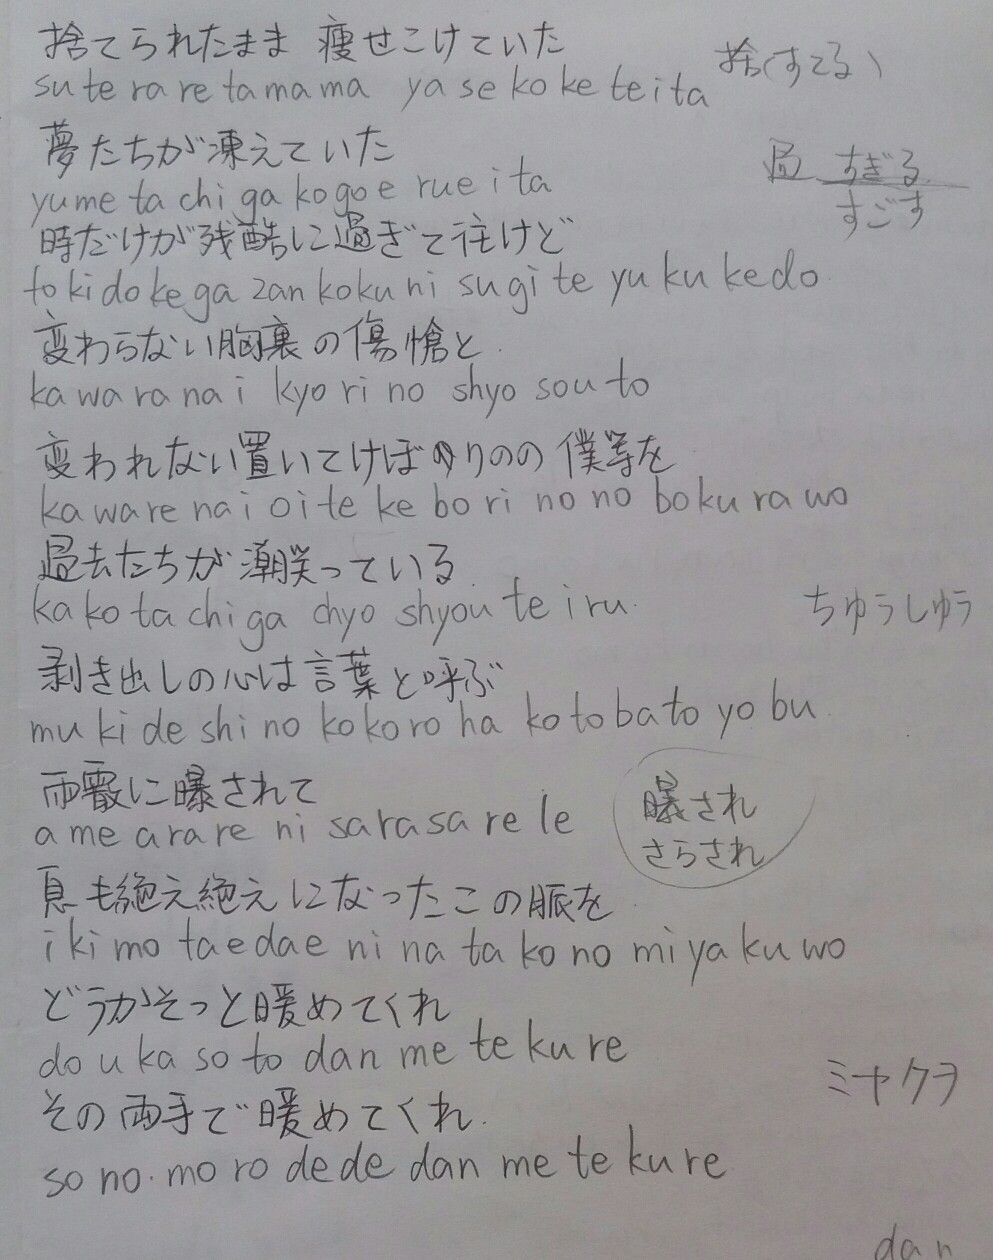 捨てられたまま 痩せこけていた
su te ra re ta ma ma ya se ko ke te i ta
捨(すてる)
夢たちが凍えていた
yu me ta chi ga ko go e rue i ta
過 すぎる
すごす
時だけが残酷に過ぎて往けど
to ki do ke ga zan ko ku ni su gi te yu ku ke do
変わらない胸裏の傷愴と
ka wa ra na i kyo ri no shyo sou to
変われない置いてけぼりのの僕等を
ka wa re na i o i te ke bo ri no no bo ku ra wo
過去たちが潮笑っている
ka ko ta chi ga chyo shyou te i ru
ちゅうしゅう
剥き出しの心は言葉と呼ぶ
mu ki de shi no ko ko ro ha ko to ba to yo bu
雨霰に曝されて
a me a ra re ni sa ra sa re le
曝され
さらされ
息も絶え絶えになったこの脈を
i ki mo ta e da e ni na ta ko no mi ya ku wo
どうかそっと暖めてくれ
do u ka so to dan me te ku re
ミヤクヲ
その両手で暖めてくれ
so no mo ro de de dan me te ku re
dan